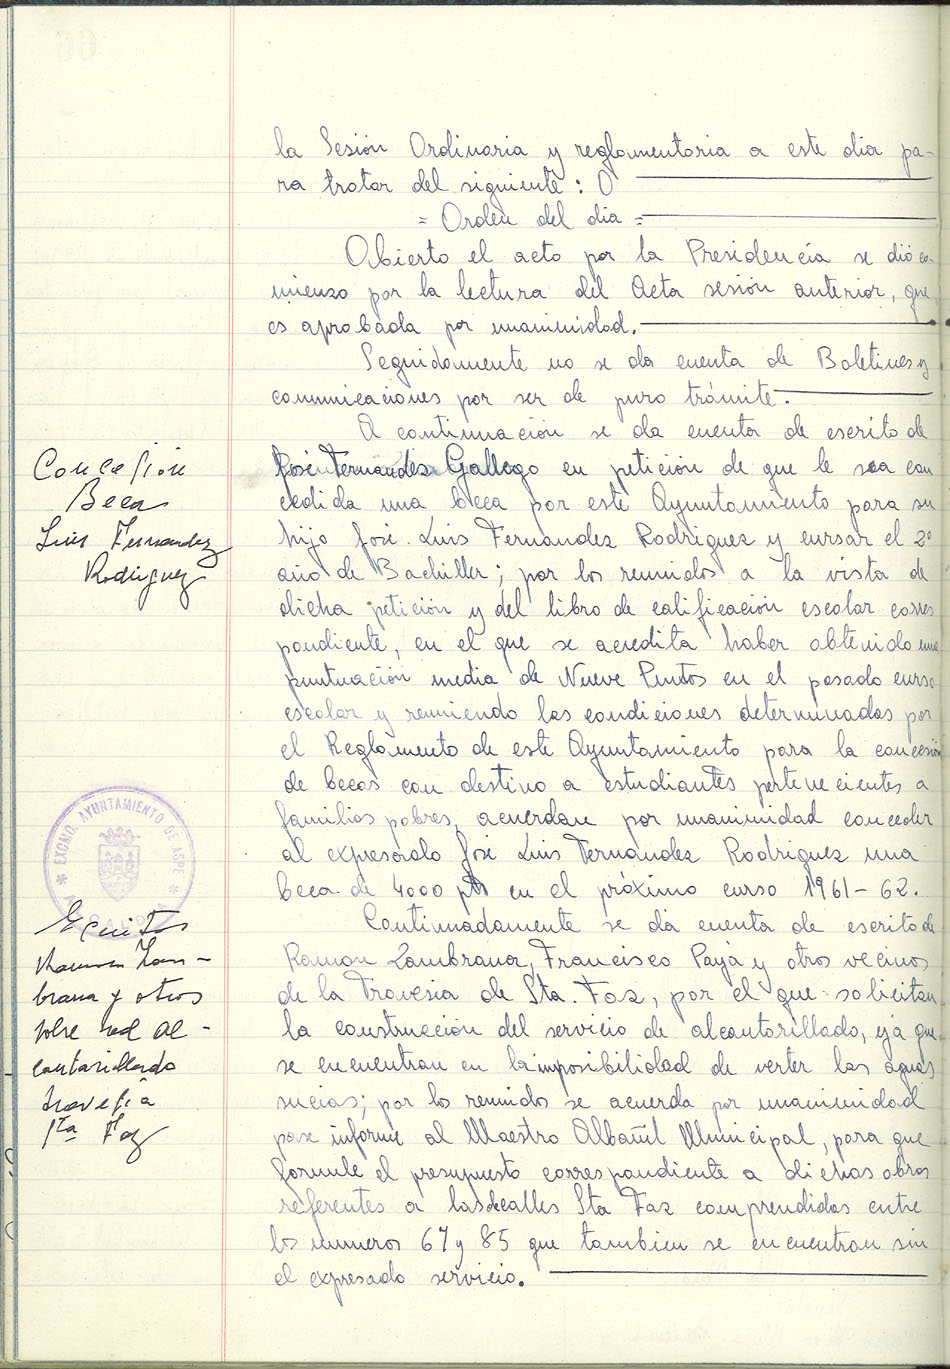 la Sesión Ordinaria y reglamentaria a este dia pa-
ra tratar del siguiente: O
= Orden del dia =
Abierto el acto por la Presidencia se dió co-
mienzo por la lectura del Acta sesión anterior, que
es aprobada por unanimidad.
Seguidamente no se da cuenta de Boletines y
comunicaciones por ser de puro trámite.
A continuación se da cuenta de escrito de
José Fernandez Gallego en petición de que le sea con
cedida una beca por este Ayuntamiento para su
hijo José Luis Fernandez Rodriguez y cursar el 2º
año de Bachiller; por los reunidos a la vista de
dicha petición y del libro de calificación escolar corres
pondiente, en el que se acredita haber obtenido una
puntuación media de Nueve Puntos en el pasado curso
escolar y reuniendo las condiciones determinadas por
el Reglamento de este Ayuntamiento para la concesión
de becas con destino a estudiantes pertenecientes a
familias pobres, acuerdan por unanimidad conceder
al expresado José Luis Fernandez Rodriguez una
beca de 4000 pts en el próximo curso 1961-62.
Continuadamente se da cuenta de escrito de
Ramon Zambrana, Francisco Payá y otros vecinos
de la Travesia de Sta. Faz, por el que solicitan
la construcción del servicio de alcantarillado, ya que
se encuentran en la imposibilidad de verter las aguas
sucias; por los reunidos se acuerda por unanimidad
pase informe al Maestro Albañil Municipal, para que
formule el presupuesto correspondiente a dichas obras
referentes a las de calles Sta Faz comprendidas entre
los numeros 67 y 85 que tambien se encuentran sin
el expresado servicio.
Concesion
Beca
Luis Fernandez
Rodriguez
EXCMO. AYUNTAMIENTO DE ASPE
ALCALDIA
Escritos
Ramon Zam-
brana y otros
sobre red al-
cantarillado
travesia
Sta Faz